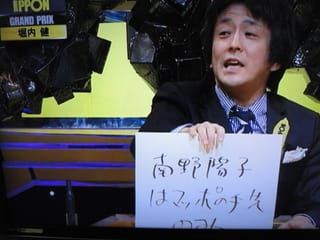 IPPON
GRAND PRIX
堀内 健
南野陽子
はマッポの手先